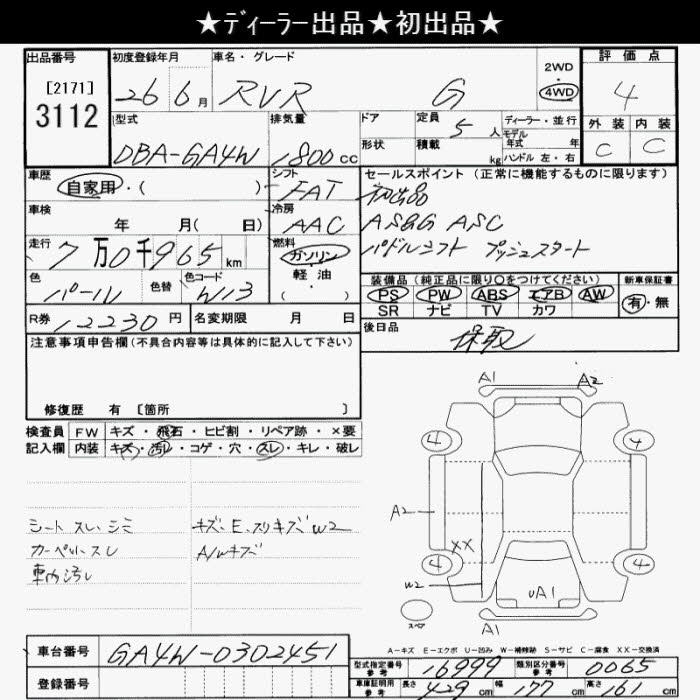 ★ディーラー出品★初出品★
出品番号 初度登録年月 車名・グレード 2WD ・ 4WD 評価点
[2171]
3112
26 6月 RVR G 4
型式 排気量 ドア 定員 5人 ディーラー・並行 外装 内装
形状 積載 kg モデル年式 年 C C
DBA-GA4W 1800cc ハンドル 左・右
車歴 シフト セールスポイント(正常に機能するものに限ります)
自家用・( ) FAT 初出品
車検 冷房 AS&G ASC
年 月( 日) AAC パドルシフト プッシュスタート
走行 燃料
7万0千965km ガソリン
軽油
( ・ )
色 色替 色コード 装備品(純正品に限り○をつけてください) 新車保証書
パール W13 PS PW ABS エアB AW 有・無
SR ナビ TV カワ
R券 12230円 名変期限 月 日 後日品
保取
注意事項申告欄(不具合内容等は具体的に記入して下さい)
修復歴 有 [箇所 ]
検査員 FW キズ・飛石・ヒビ割・リペア跡・×要
記入欄 内装 キズ・汚レ・コゲ・穴・スレ・キレ・破レ
シート スレ、シミ
カーペットスレ
車内汚レ
キズ、E、スリキズW2
A/Wキズ
A1 A2
4 4
A2
XX
4 4
W2
UA1
スペア
A1
A-キズ E-エクボ U-凹み W-補修跡 S-サビ C-腐食 XX-交換済
車台番号 GA4W-0302451
登録番号
型式指定番号 参考 16999 類別区分番号 参考 0065
車庫証明用 参考 長さ 429cm 幅 177cm 高さ 161cm